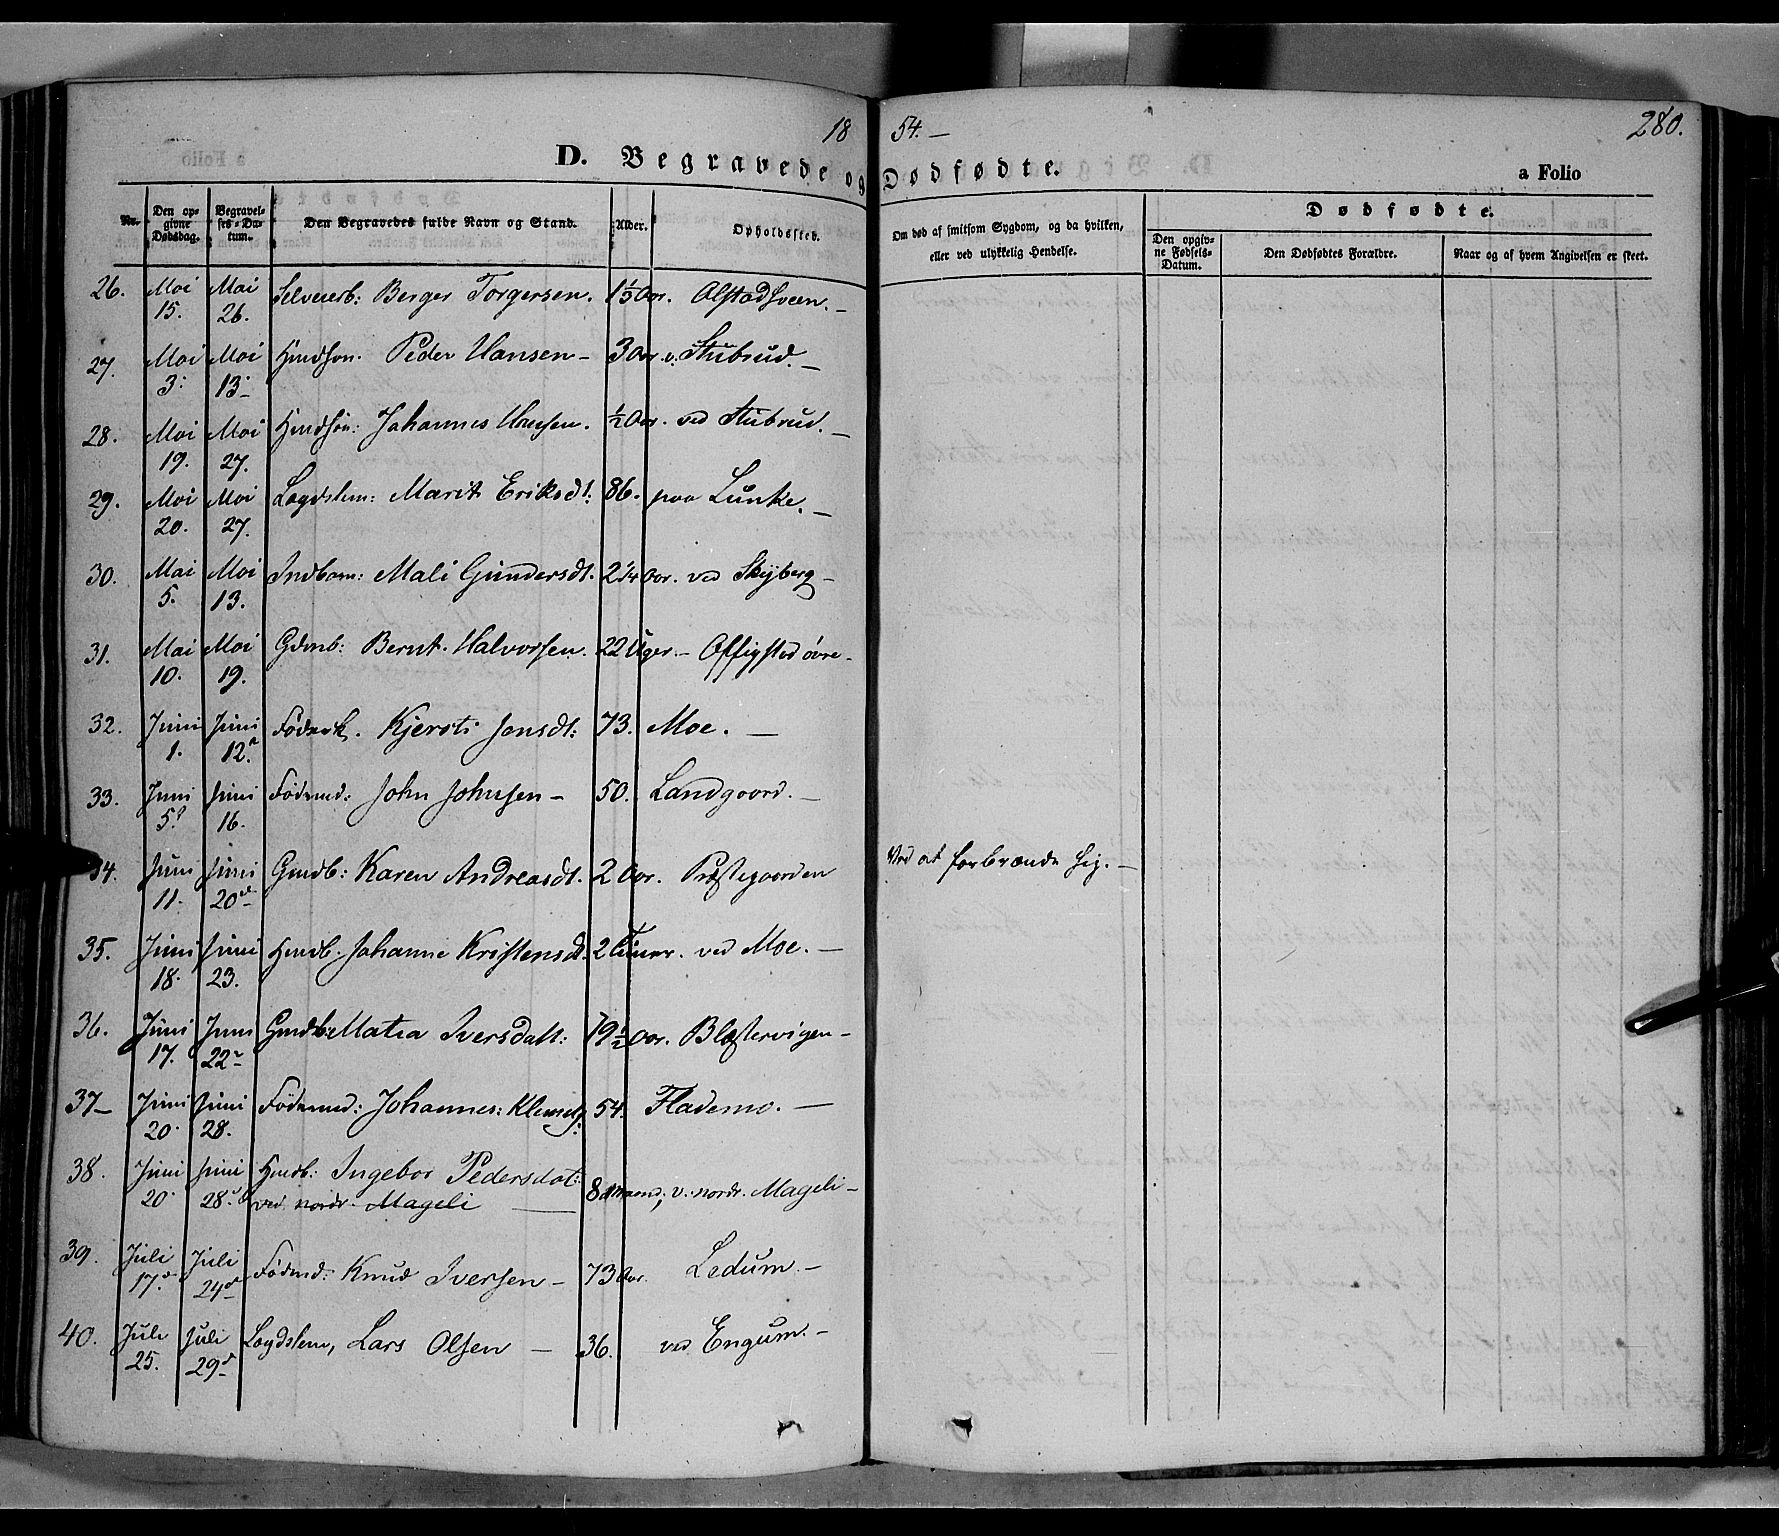 18 54.— 280.
D. Begravede og Dødfødte. a Folio
Nr. Den opgivne Dødsdag. Begravelses-Datum. Den Begravedes fulde Navn og Stand. Alder. Opholdssted. Om død af smitsom Sygdom, og da hvilken, eller ved ulykkelig Hendelse. Dødfødte.
Den opgivne Fødsels-Datum. Den Dødfødtes Forældre. Naar og af hvem Angivelsen er skeet.
26. Mai 15. Mai 26. Selveierb: Berger Torgersen. 1½ Aar. Alstadsveen.—
27. Mai 3. Mai 13. Hmdsøn. Peder Hansen— 3 Aar. v. Stubrud.—
28. Mai 19. Mai 27. Hmdsøn: Johannes Hansen. ½ Aar. ved Stubrud.—
29. Mai 20. Mai 27. Lægdslem: Marit Eriksdt: 86. paa Lunke.—
30. Mai 5. Mai 13. Indbarn: Mali Gundersdt. 2¼ Aar. ved Skyberg—
31. Mai 10. Mai 19. Gdmb: Bernt Halvorsen. 22 Uger.— Offigstad øvre—
32. Juni 1. Juni 12. Føderk. Kjersti Jonsdt: 73. Moe.—
33. Juni 5. Juni 16. Fødemd: John Johnsen— 50. Landgaard.—
34. Juni 11. Juni 20de Gmdb: Karen Andreasdt. 2 Aar. Præstegaarden Ved at forbrænde sig.—
35. Juni 18. Juni 23. Hmdb: Johanne Kristensdt. 2 Timer. ved Moe.—
36. Juni 17. Juni 22. Gmdb: Matea Iversdatt: 19½ Aar. Blæstervigen—
37— Juni 20. Juni 28. Fødemd: Johannes Klemets: 54. Flademo.—
38. Juni 20. Juni 28. Hmdb: Ingebor Pedersdat:
ved nordr. Mageli — 8 Maaned; v. nordr. Mageli—
39. Juli 17. Juli 24d Fødmd: Knud Iversen— 73 Aar. Ledum.—
40. Juli 25. Juli 29d Lægdslem, Lars Olsen— 36. ved Engum.—